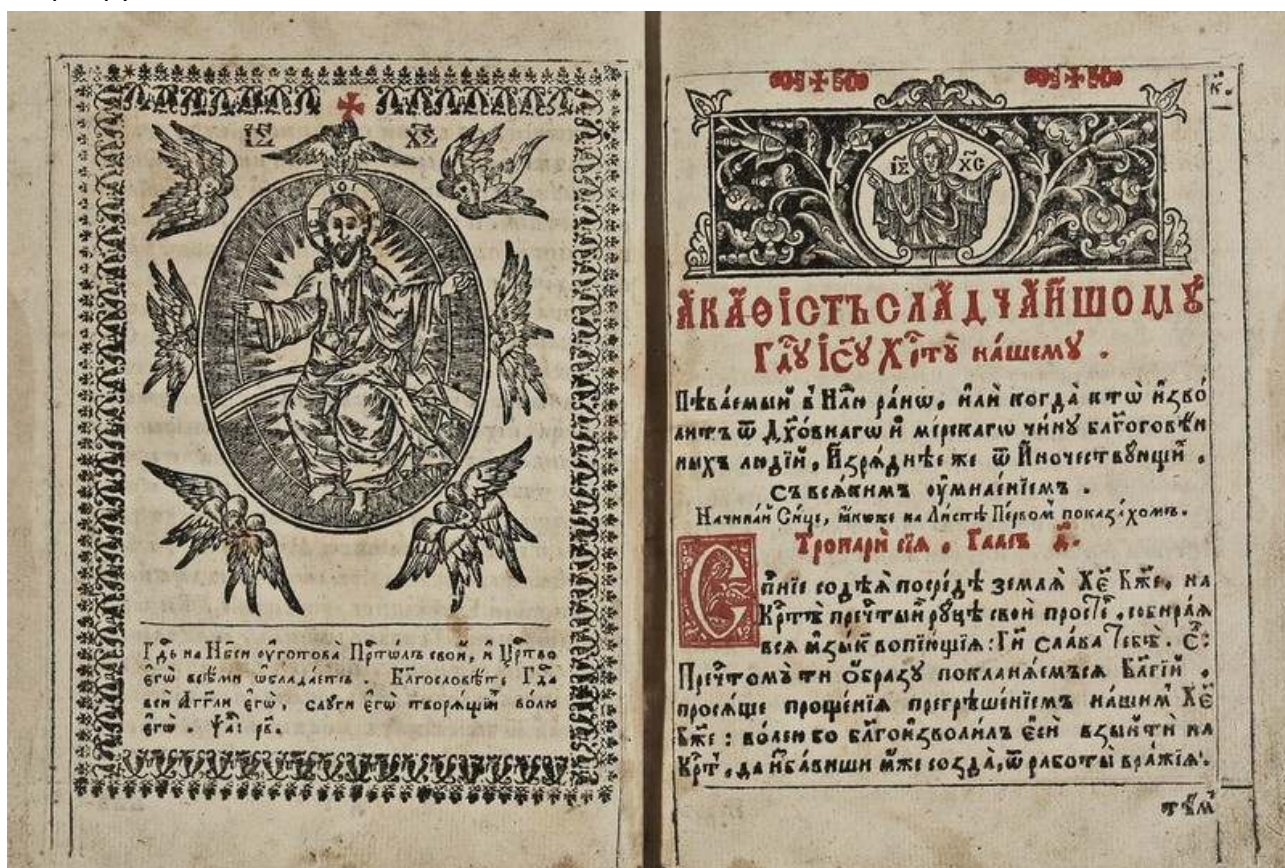 І҃С Х҃С
Гдⷭ҇ь на Нб҃си ᲂу҆готова Прⷭ҇то́лъ свой, и҆ Црⷭ҇тво
є҆гѡ̀ всѣ́ми ѡ҆блада́етъ . Благослови́те Гдⷭ҇а
вси А҆́гг҃ли є҆гѡ̀, слꙋги є҆гѡ̀ творѧ́щїи во́лю
є҆гѡ̀ . Ѱа҃л: рв҃.
к҃.
І҃С Х҃С
АКА́ѲІСТЪ СЛАДЧА́ЙШОМꙋ
Гдⷭ҇ꙋ І҆С҃ꙋ Хрⷭ҇тꙋ̀ на́шемꙋ .
Пѣва́емый в Нл҃ю ра́нѡ, и҆лѝ когда̀ ктѡ̀ и҆зво́
литъ ѿ Дх҃о́внагѡ и҆ мі́рскагѡ чи́нꙋ бл҃гоговѣ́й
ныхъ люді́й, И҆зрѧ́днѣе же ѿ И҆ночествꙋющиⷯ .
съ всѧ́кимъ ᲂу҆миле́нїемъ .
Начина́й Си́це, ꙗ҆́коже на Ли́стѣ Первомⸯ показа́хомъ.
Тропарѝ сїѧ̀ . Гла́съ д҃.
Сп҃нїе содѣ́ѧ посредѣ̀ землѧ̀ Хе҃ Бж҃е, на
Крⷭ҇тѣ̀ пречⷭ҇тыи рꙋцѣ своѝ простре́, собира́ѧ
всѧ ꙗ҆зы́к вопїю́щїѧ : Гд҇и сла́ва Тебѣ̀ . С҃:
Пречⷭ҇томꙋ ти О҆́бразꙋ покланѧ́емъсѧ Бл҃гі́й ,
просѧ́ще проще́нїѧ прегрѣше́нїемъ на́шимъ Хе҃
Бж҃е : во́лею бо бл҃гои҆зво́лилъ є҆сѝ взы́йти на
Крⷭ҇т, да и҆зба́виши ꙗ҆́же созда̀, ѿ рабо́ты вра́жїѧ .
тѣ́мⸯ